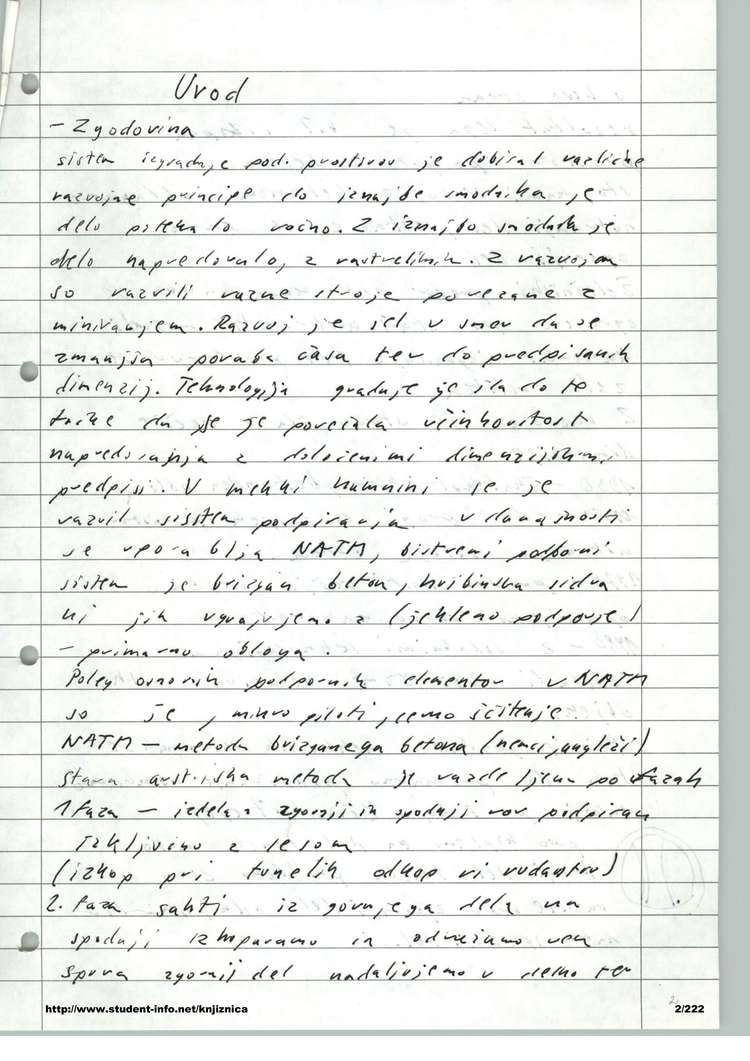 Uvod
- Zgodovina
sistem izgradnje pod. prostorov je dobival različne
razvojne principe do iznajbe smodnika je
delo potekalo ročno. Z iznajbo smodnik je
delo napredovalo, z rastrelibnih. Z razvojom
so razvili razne stroje povezane z
miniranjem. Razvoj je šel v smer da se
zmanjša poraba časa ter do predpisanih
dimenzij. Tehnologija gradnje je šla do te
točke da se je povečala učinkovitost
napredovanja z določenimi dimenzijskimi
predpisi. V mehki kamnini se je
razvil sisstem podpiranja v današnosti
se uporablja NATM, bistveni podporni
sistem je brizgan beton, hribinska sidra
ki jih vgrajujemo z (jekleno podporje)
- primarno obloga.
Poleg osnovnih podpornih elementov v NATM
so še, mikro piloti, ščitenje
NATM - metoda brizganega betona (nemci, angleži)
Stara avstrijska metoda je razdeljena po fazah
1 faza - izdela zgornji in spodnji rov podpiran
izključno z lesom
(izkop pri tunelih odkop v rudarstvu)
2. faza šahti iz gornjega dela na
spodnji izkopavamo in odvažamo ven
zgornji del nadaljujemo v ter
2
http://www.student-info.net/knjiznica
2/222